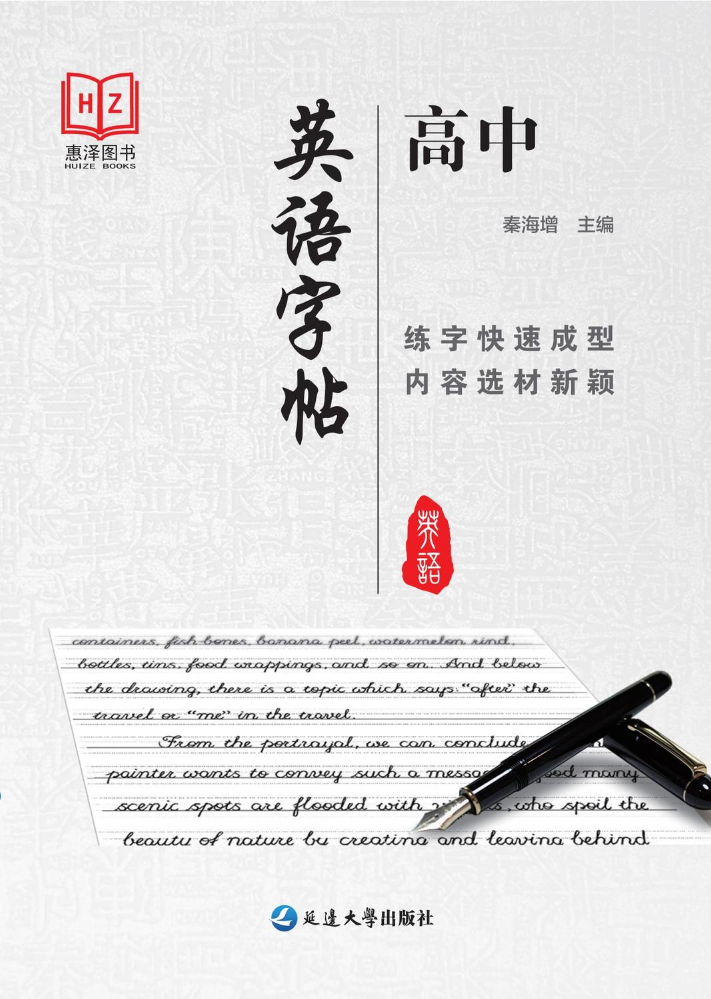 HZ
惠泽图书
HUIZE BOOKS
英语字帖
高中
秦海增 主编
练字快速成型
内容选材新颖
英語
containers, fish-bones, banana peel, watermelon rind,
bottles, tins, food wrappings, and so on. And below
the drawing, there is a topic which says: "after" the
travel or "me" in the travel.
From the portrayal, we can conclude
painter wants to convey such a many
scenic spots are flooded with who spoil the
beauty of nature by creating and leaving behind
延邊大學出版社